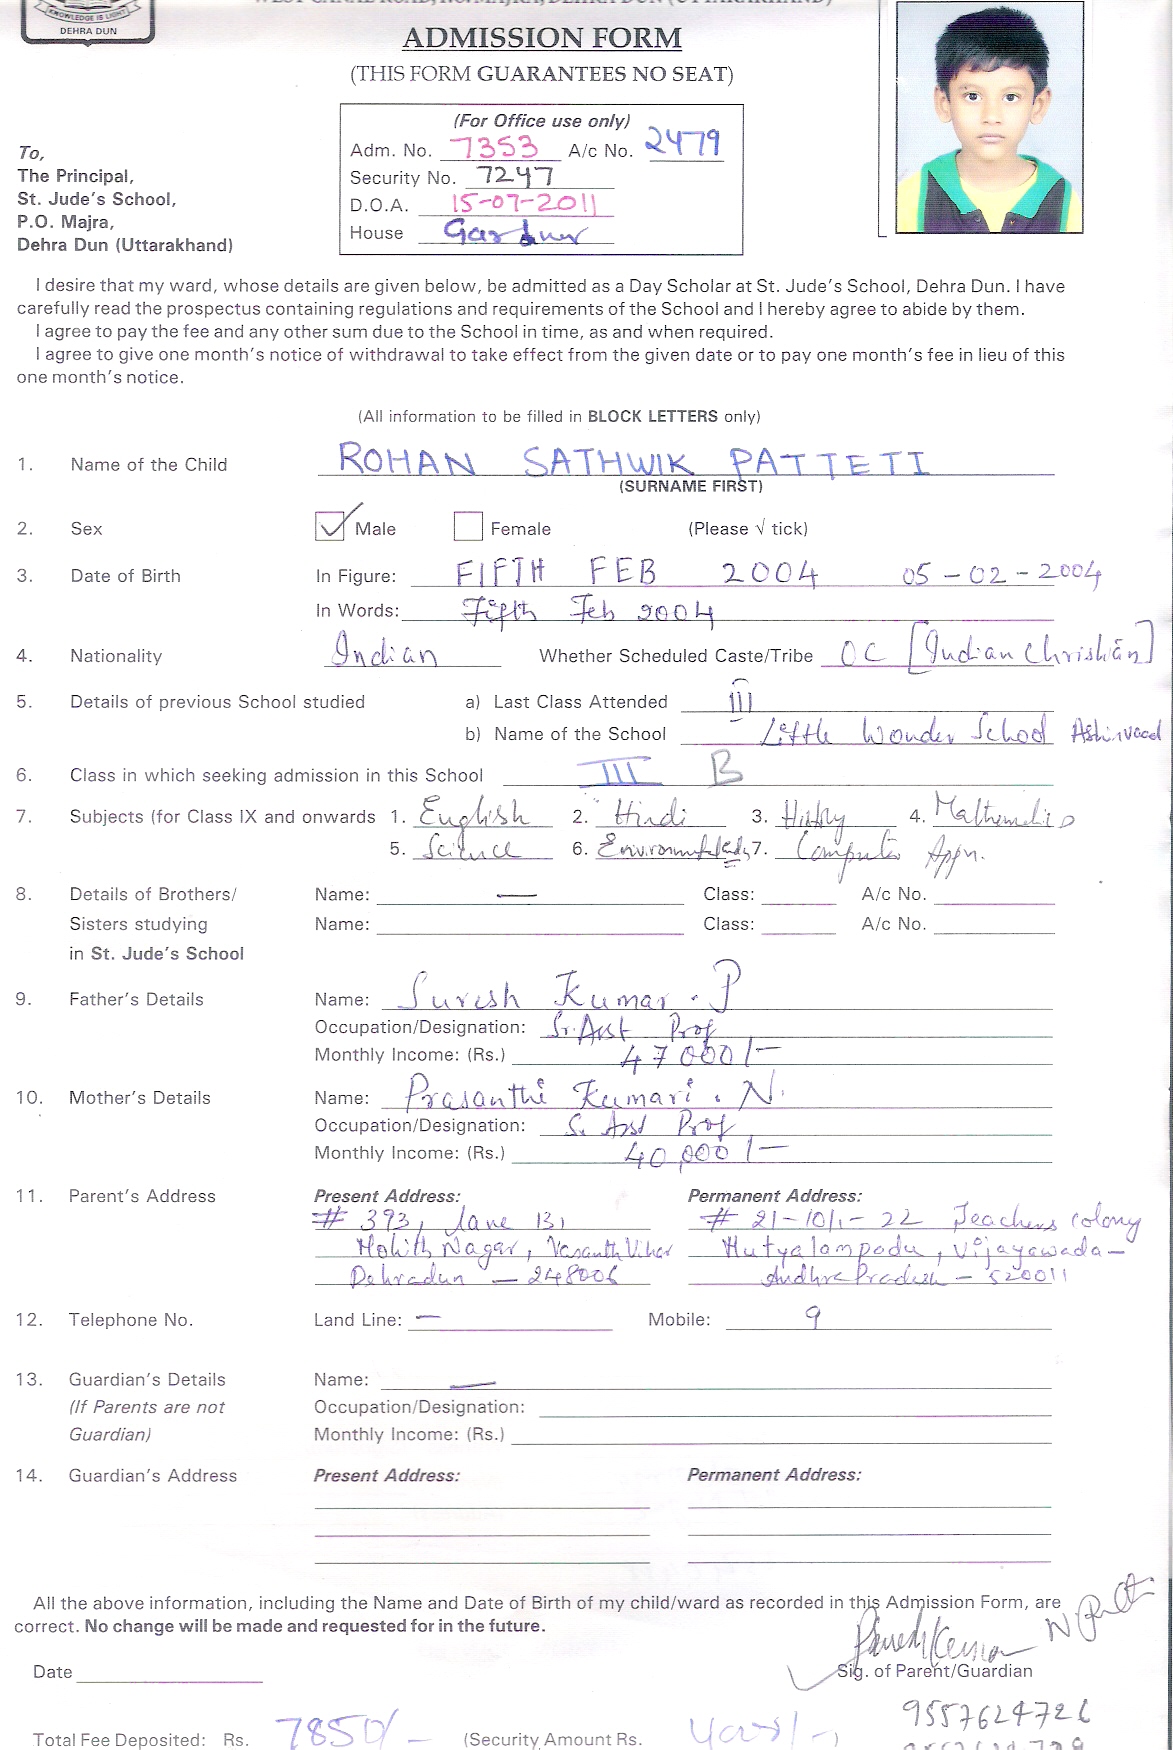 KNOWLEDGE IS LIGHT
DEHRA DUN
ADMISSION FORM
(THIS FORM GUARANTEES NO SEAT)
(For Office use only)
Adm. No. 7353 A/c No. 2479
Security No. 7247
D.O.A. 15-07-2011
House
To,
The Principal,
St. Jude's School,
P.O. Majra,
Dehra Dun (Uttarakhand)
I desire that my ward, whose details are given below, be admitted as a Day Scholar at St. Jude's School, Dehra Dun. I have
carefully read the prospectus containing regulations and requirements of the School and I hereby agree to abide by them.
I agree to pay the fee and any other sum due to the School in time, as and when required.
I agree to give one month's notice of withdrawal to take effect from the given date or to pay one month's fee in lieu of this
one month's notice.
(All information to be filled in BLOCK LETTERS only)
1. Name of the Child ROHAN SATHWIK PATTETI
(SURNAME FIRST)
2. Sex ✓ Male Female (Please √ tick)
3. Date of Birth In Figure: FIFTH FEB 2004 05-02-2004
In Words: Fifth Feb 2004
4. Nationality Indian Whether Scheduled Caste/Tribe OC [Indian Christian]
5. Details of previous School studied a) Last Class Attended III
b) Name of the School Little Wonder School Ashirvaad
6. Class in which seeking admission in this School III B
7. Subjects (for Class IX and onwards 1. English 2. Hindi 3. History 4. Mathematics
5. Science 6. 7. Computer Appn.
8. Details of Brothers/ Name: — Class: A/c No.
Sisters studying Name: Class: A/c No.
in St. Jude's School
9. Father's Details Name: Suresh Kumar. P
Occupation/Designation: Sr. Asst Prof
Monthly Income: (Rs.) 47000/-
10. Mother's Details Name: Prasanthi Kumari. N.
Occupation/Designation: S. Asst Prof
Monthly Income: (Rs.) 40,000/-
11. Parent's Address Present Address: Permanent Address:
# 393, lane 13, # 21-10/1-22 Teachers colony
Mohith Nagar, Vasanth Vihar Mutyalampadu, Vijayawada-
Dehradun - 248006 Andhra Pradesh - 520011
12. Telephone No. Land Line: — Mobile: 9
13. Guardian's Details Name: —
(If Parents are not Occupation/Designation:
Guardian) Monthly Income: (Rs.)
14. Guardian's Address Present Address: Permanent Address:
All the above information, including the Name and Date of Birth of my child/ward as recorded in this Admission Form, are
correct. No change will be made and requested for in the future.
Date Sig. of Parent/Guardian
9557624726
Total Fee Deposited: Rs. 7850/- (Security Amount Rs. )